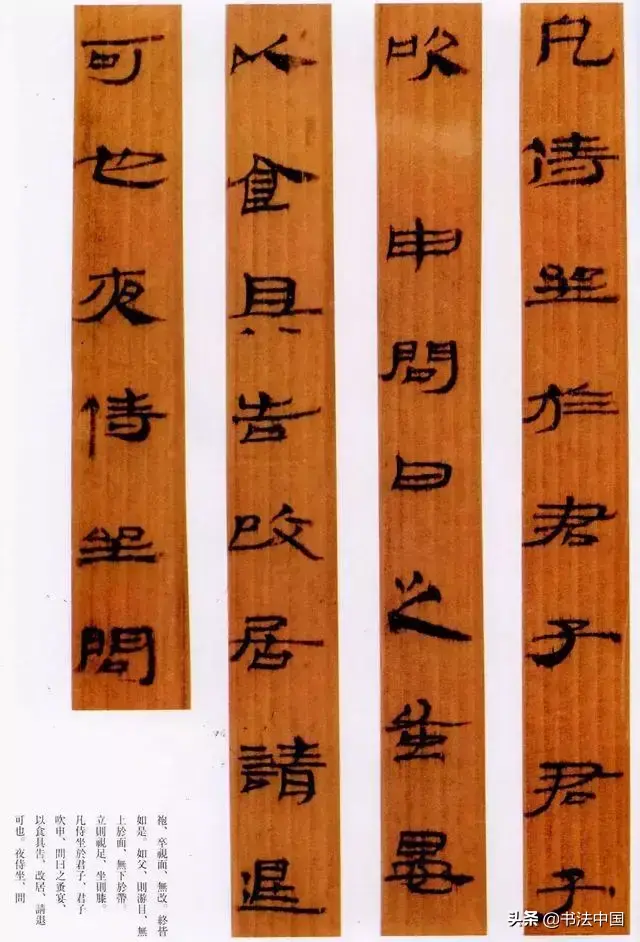 凡侍坐於君子君子
吹申問日之蚤晏
以食具告改居請退
可也夜侍坐問
袍、卒視面、無改。終皆
如是。如父、則游目、無
上於面、無下於帶。
立則視足、坐則膝。
凡侍坐於君子、君子
吹申、問日之蚤宴、
以食具告、改居、請退
可也。夜侍坐、問
头条 @书法中国